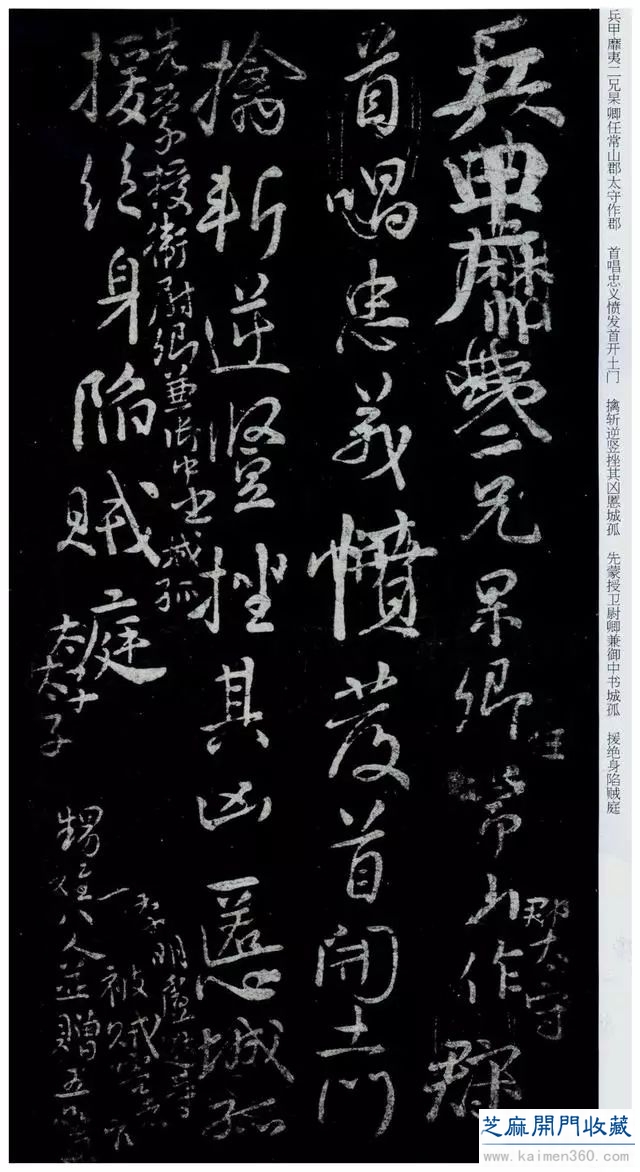 兵甲靡夷二兄杲卿任常山郡太守作郡 首唱忠义愤发首开土门 擒斩逆竖挫其凶慝城孤 先蒙授卫尉卿兼御中书城孤 援绝身陷贼庭
兵甲靡夷二兄杲卿任常山郡太守作郡
首唱忠義憤發首開土門
擒斬逆竪挫其凶慝城孤
先蒙授衛尉卿兼御中書城孤
援絶身陷賊庭
太子
甥姪
八人並贈五品
芝麻開門收藏
www.kaimen360.com